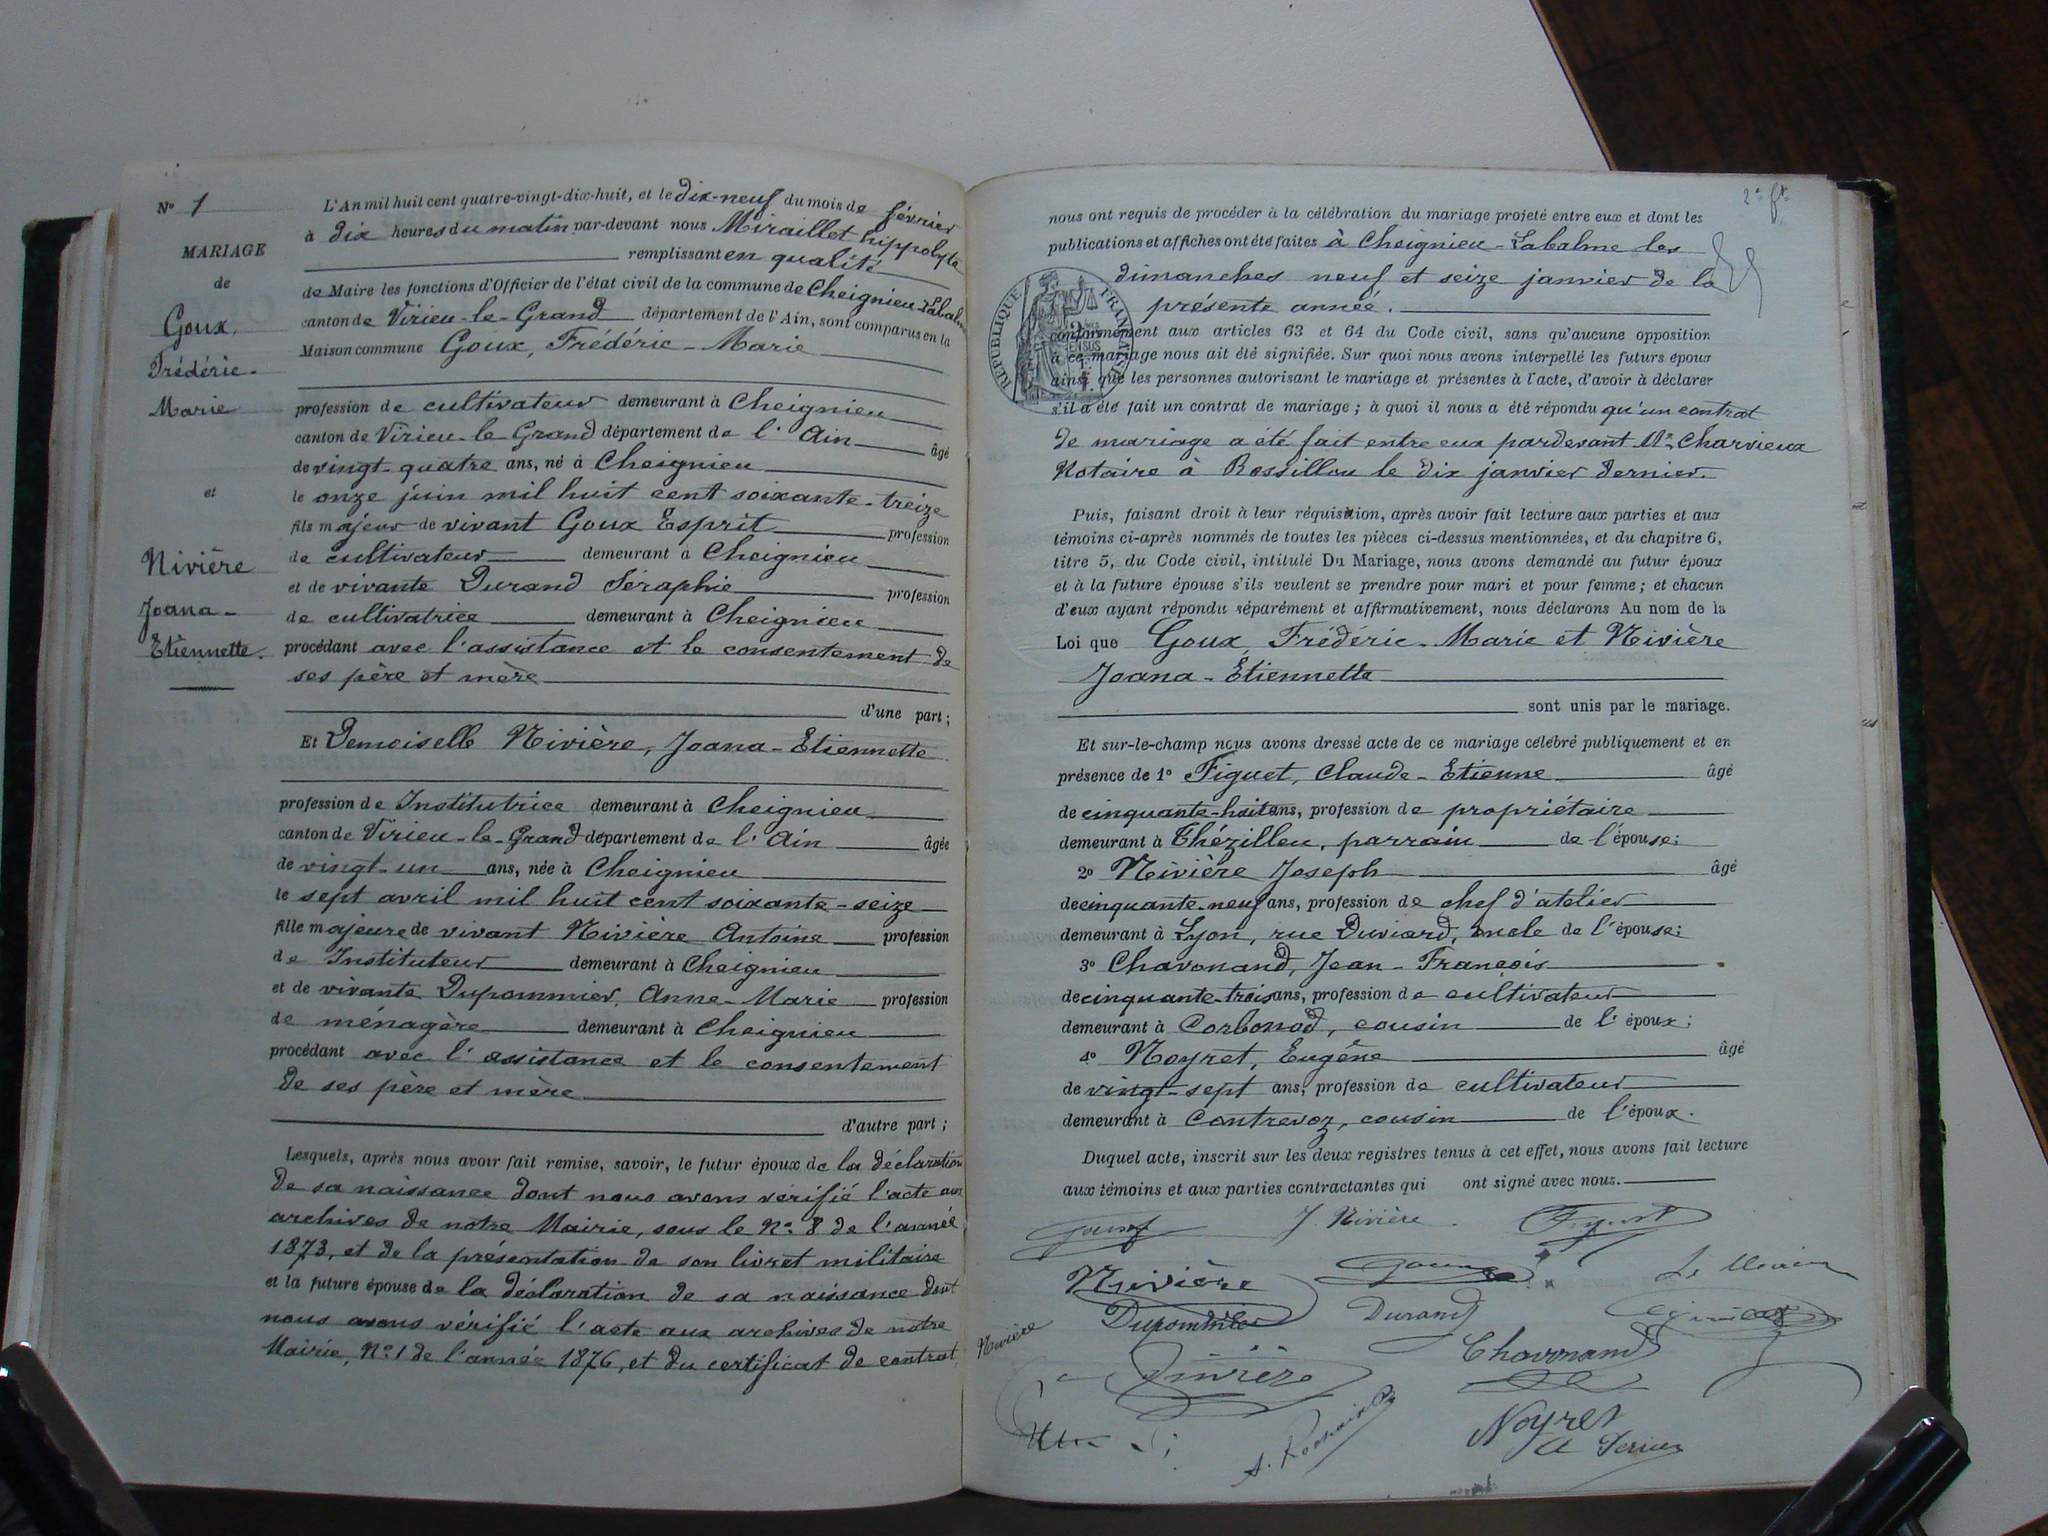 N° 1
MARIAGE
de
Goux,
Frédéric-
Marie
et
Nivière
Joana-
Etiennette.
L'An mil huit cent quatre-vingt-dix-huit, et le dix-neuf du mois de février
à dix heures du matin par-devant nous Miraillet hippolyte
remplissant en qualité
de Maire les fonctions d'Officier de l'état civil de la commune de Cheignieu-Labalme
canton de Virieu-le-Grand département de l'Ain, sont comparus en la
Maison commune Goux, Frédéric-Marie
profession de cultivateur demeurant à Cheignieu
canton de Virieu-le-Grand département de l'Ain âgé
de vingt-quatre ans, né à Cheignieu
le onze juin mil huit cent soixante-treize
fils majeur de vivant Goux Esprit profession
de cultivateur demeurant à Cheignieu
et de vivante Durand Séraphie profession
de cultivatrice demeurant à Cheignieu
procédant avec l'assistance et le consentement de
ses père et mère
d'une part;
Et Demoiselle Nivière, Joana-Etiennette
profession de Institutrice demeurant à Cheignieu
canton de Virieu-le-Grand département de l'Ain âgée
de vingt-un ans, née à Cheignieu
le sept avril mil huit cent soixante-seize
fille majeure de vivant Nivière Antoine profession
de Instituteur demeurant à Cheignieu
et de vivante Dupommier, Anne-Marie profession
de ménagère demeurant à Cheignieu
procédant avec l'assistance et le consentement
de ses père et mère
d'autre part;
Lesquels, après nous avoir fait remise, savoir, le futur époux de la déclaration
de sa naissance dont nous avons vérifié l'acte aux
archives de notre Mairie, sous le N° 8 de l'année
1873, et de la présentation de son livret militaire
et la future épouse de la déclaration de sa naissance dont
nous avons vérifié l'acte aux archives de notre
Mairie, N° 1 de l'année 1876, et du certificat de contrat
2e ft.
nous ont requis de procéder à la célébration du mariage projeté entre eux et dont les
publications et affiches ont été faites à Cheignieu-Labalme les
dimanches neuf et seize janvier de la
présente année.
RÉPUBLIQUE FRANÇAISE
conformément aux articles 63 et 64 du Code civil, sans qu'aucune opposition
à ce mariage nous ait été signifiée. Sur quoi nous avons interpellé les futurs époux
ainsi que les personnes autorisant le mariage et présentes à l'acte, d'avoir à déclarer
s'il a été fait un contrat de mariage; à quoi il nous a été répondu qu'un contrat
de mariage a été fait entre eux pardevant Me Charvieux
Notaire à Rossillon le dix janvier dernier.
Puis, faisant droit à leur réquisition, après avoir fait lecture aux parties et aux
témoins ci-après nommés de toutes les pièces ci-dessus mentionnées, et du chapitre 6,
titre 5, du Code civil, intitulé Du Mariage, nous avons demandé au futur époux
et à la future épouse s'ils veulent se prendre pour mari et pour femme; et chacun
d'eux ayant répondu séparément et affirmativement, nous déclarons Au nom de la
Loi que Goux, Frédéric-Marie et Nivière
Joana-Etiennette
sont unis par le mariage.
Et sur-le-champ nous avons dressé acte de ce mariage célébré publiquement et en
présence de 1° Figuet, Claude-Etienne âgé
de cinquante-huit ans, profession de propriétaire
demeurant à Thézillieu, parrain de l'épouse;
2° Nivière Joseph âgé
de cinquante-neuf ans, profession de chef d'atelier
demeurant à Lyon, rue Duviard, oncle de l'épouse;
3° Chavonand, Jean-François
de cinquante-trois ans, profession de cultivateur
demeurant à Corbonod, cousin de l'époux;
4° Noyret, Eugène âgé
de vingt-sept ans, profession de cultivateur
demeurant à Contrevoz, cousin de l'époux.
Duquel acte, inscrit sur les deux registres tenus à cet effet, nous avons fait lecture
aux témoins et aux parties contractantes qui ont signé avec nous.
Goux J. Nivière Figuet
Nivière Goux
Dupommier Durand
Nivière
Nivière Chavonand
Noyret